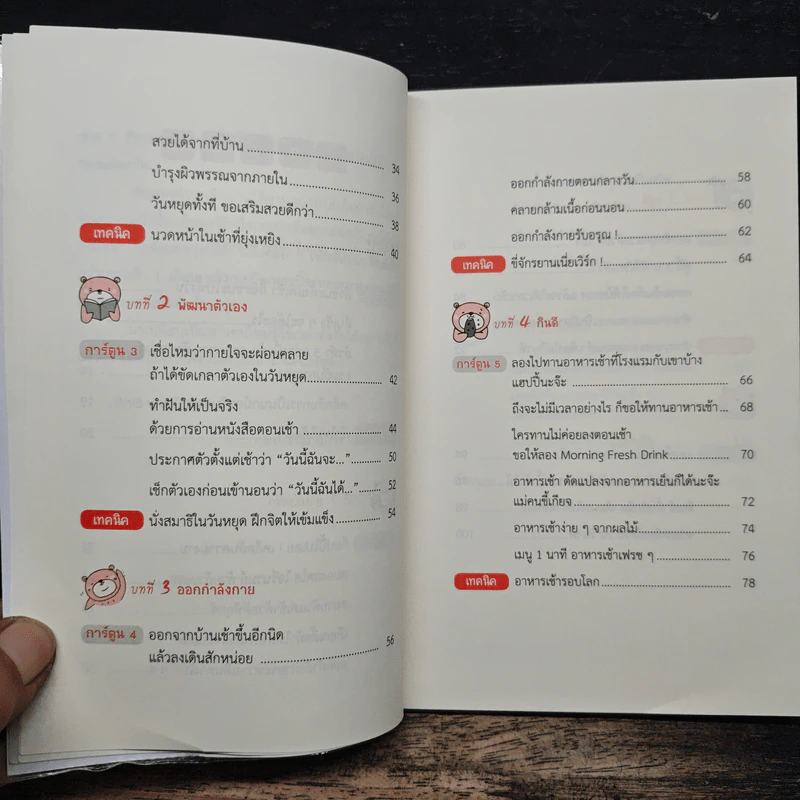 สวยได้จากที่บ้าน 34
บำรุงผิวพรรณจากภายใน 36
วันหยุดทั้งที ขอเสริมสวยดีกว่า 38
เทคนิค นวดหน้าในเช้าที่ยุ่งเหยิง 40
บทที่ 2 พัฒนาตัวเอง
การ์ตูน 3 เชื่อไหมว่ากายใจจะผ่อนคลาย
ถ้าได้ขัดเกลาตัวเองในวันหยุด 42
ทำฝันให้เป็นจริง
ด้วยการอ่านหนังสือตอนเช้า 44
ประกาศตัวตั้งแต่เช้าว่า “วันนี้ฉันจะ...” 50
เช็กตัวเองก่อนเข้านอนว่า “วันนี้ฉันได้...” 52
เทคนิค นั่งสมาธิในวันหยุด ฝึกจิตให้เข้มแข็ง 54
บทที่ 3 ออกกำลังกาย
การ์ตูน 4 ออกจากบ้านเช้าขึ้นอีกนิด
แล้วลงเดินสักหน่อย 56
ออกกำลังกายตอนกลางวัน 58
คลายกล้ามเนื้อก่อนนอน 60
ออกกำลังกายรับอรุณ ! 62
เทคนิค ขี่จักรยานเนี่ยเวิร์ก ! 64
บทที่ 4 กินดี
การ์ตูน 5 ลองไปทานอาหารเช้าที่โรงแรมกับเขาบ้าง
แฮปปี้นะจ๊ะ 66
ถึงจะไม่มีเวลาอย่างไร ก็ขอให้ทานอาหารเช้า 68
ใครทานไม่ค่อยลงตอนเช้า
ขอให้ลอง Morning Fresh Drink 70
อาหารเช้า ดัดแปลงจากอาหารเย็นก็ได้นะจ๊ะ
แม่คนขี้เกียจ 72
อาหารเช้าง่าย ๆ จากผลไม้ 74
เมนู 1 นาที อาหารเช้าเฟรช ๆ 76
เทคนิค อาหารเช้ารอบโลก 78